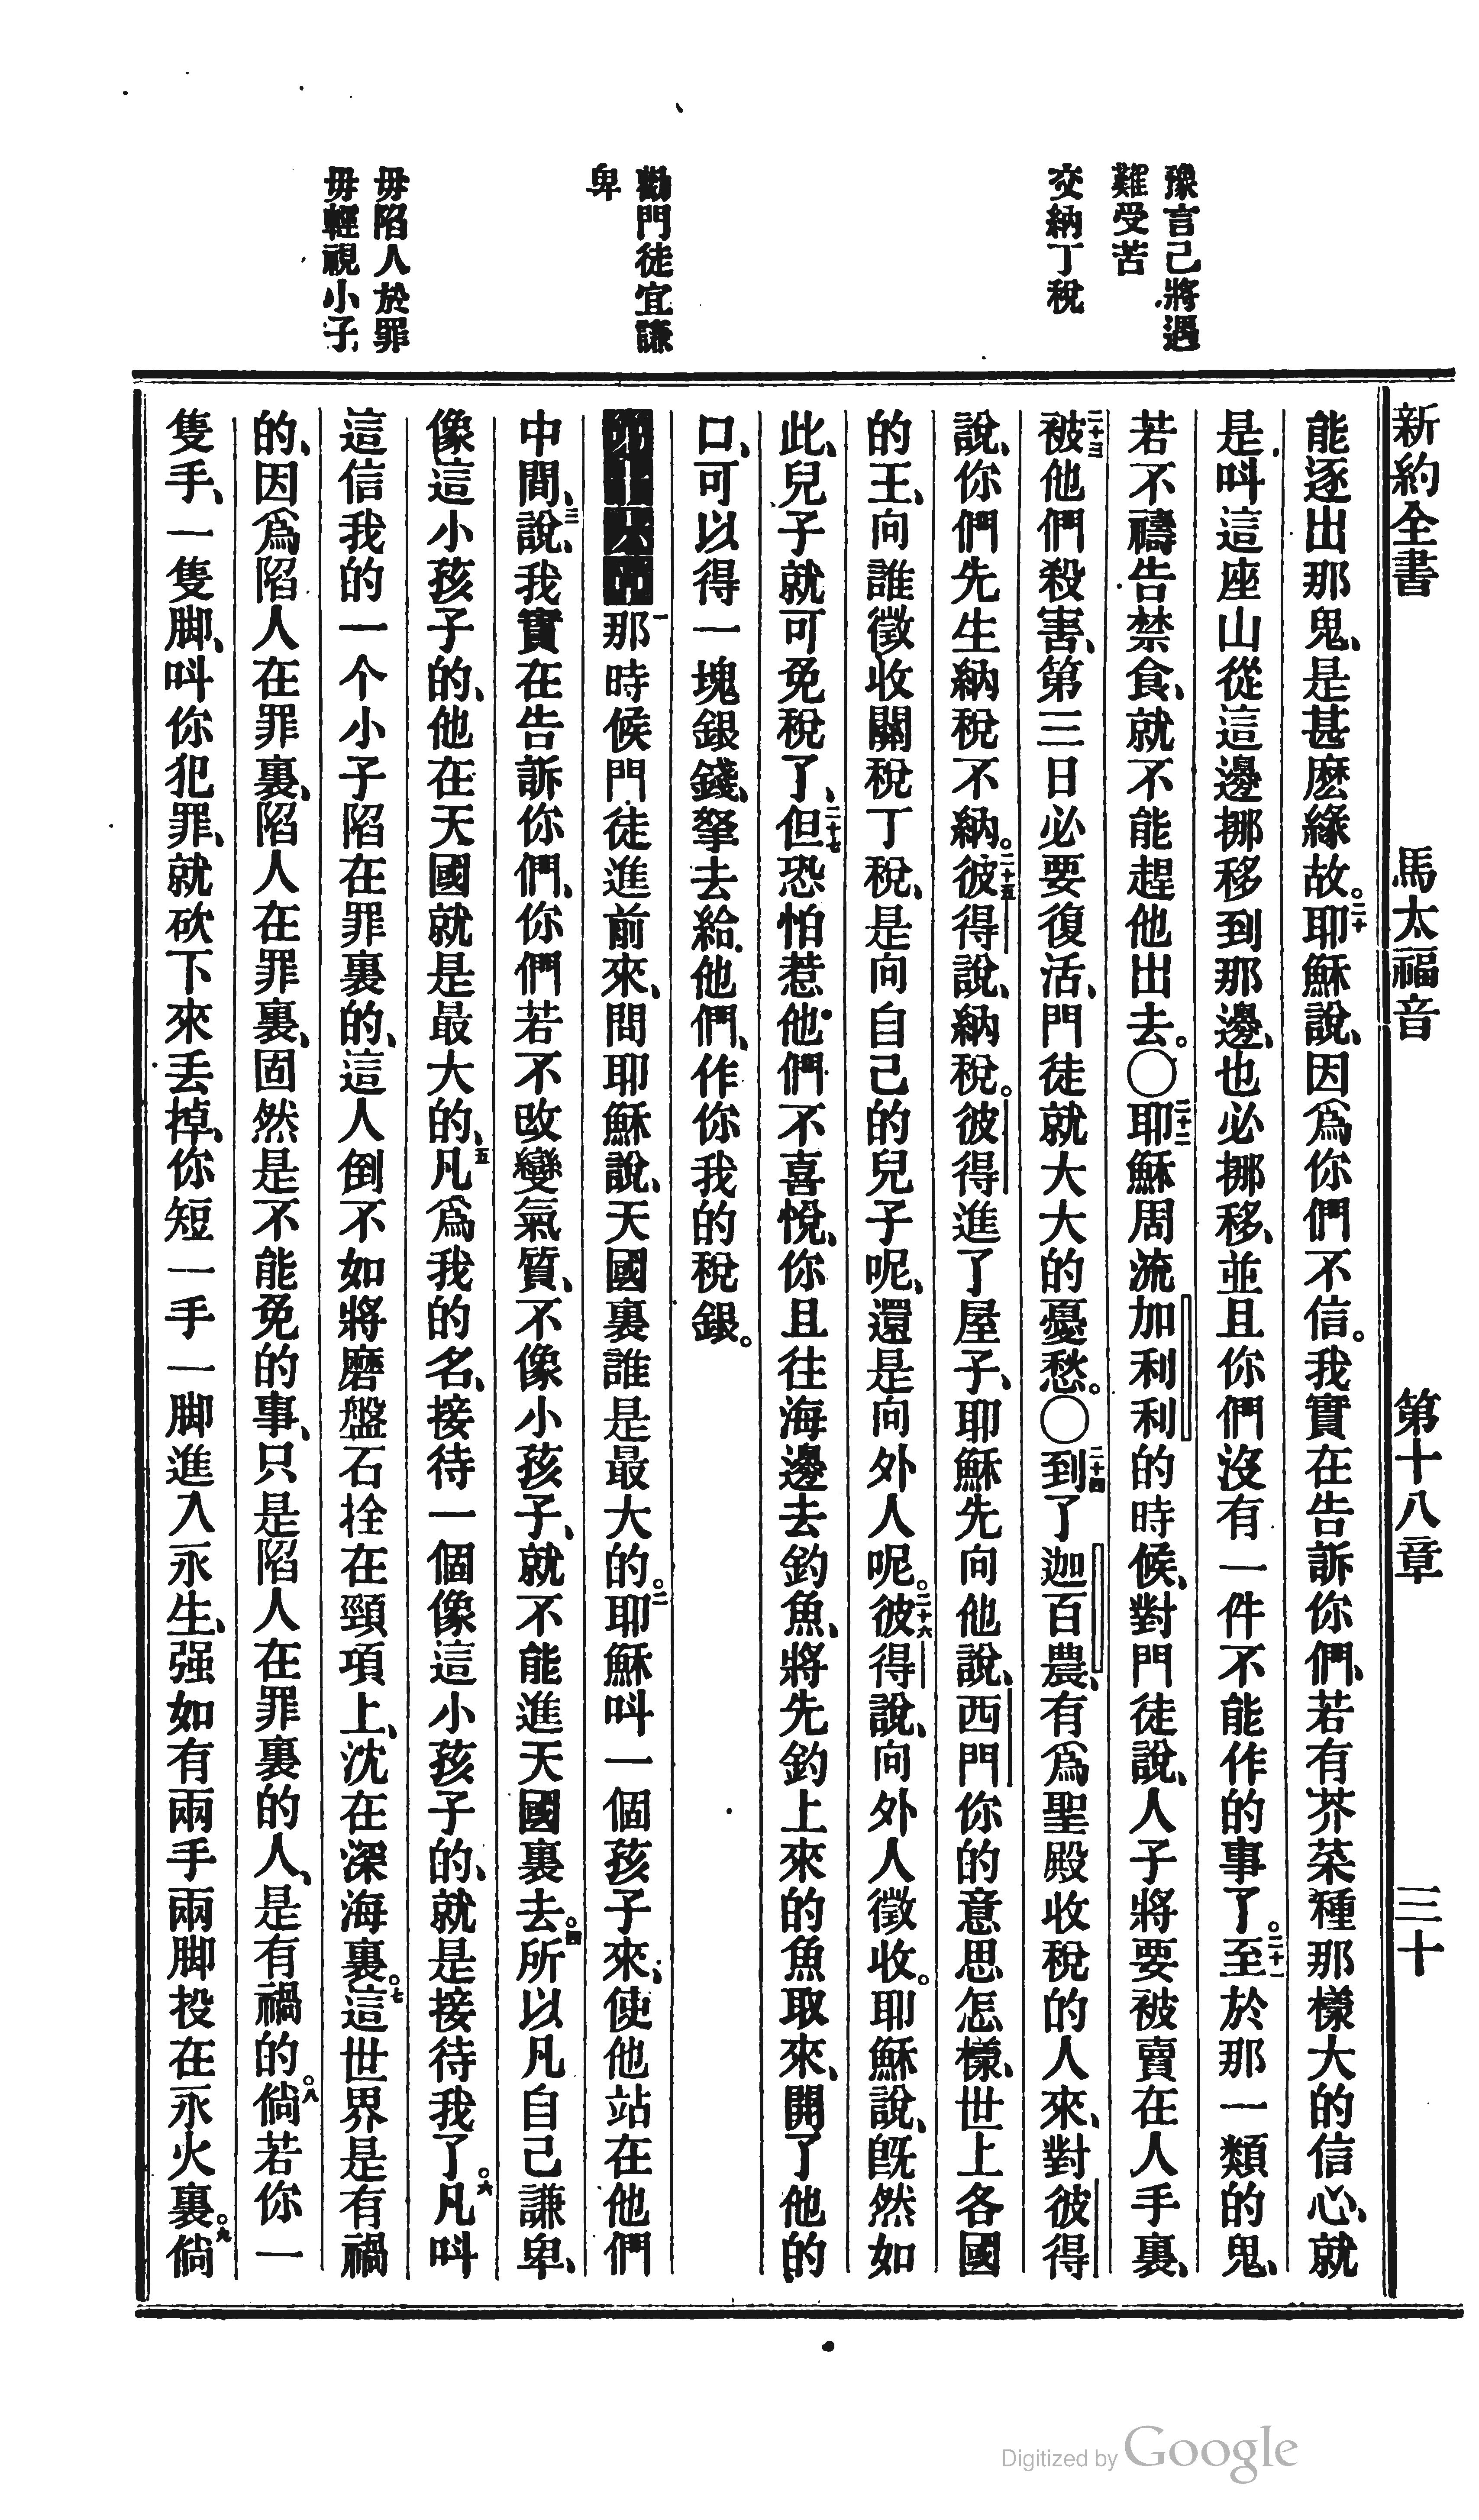 新約全書 馬太福音 第十八章 三十
豫言己將遇
難受苦
交納丁稅
勸門徒宜謙
卑
毋陷人於罪
毋輕視小子
能逐出那鬼、是甚麽緣故。二十耶穌說、因爲你們不信。我實在告訴你們、若有芥菜種那樣大的信心、就
是呌這座山從這邊挪移到那邊、也必挪移、並且你們沒有一件不能作的事了。二十一至於那一類的鬼、
若不禱告禁食、就不能趕他出去。〇二十二耶穌周流加利利的時候、對門徒說、人子將要被賣在人手裏、
二十三被他們殺害、第三日必要復活、門徒就大大的憂愁。〇二十四到了迦百農、有爲聖殿收稅的人來、對彼得
說、你們先生納稅不納。二十五彼得說、納稅。彼得進了屋子、耶穌先向他說、西門你的意思怎樣、世上各國
的王、向誰徵收關稅丁稅、是向自己的兒子呢、還是向外人呢。二十六彼得說、向外人徵收。耶穌說、旣然如
此、兒子就可免稅了、二十七但恐怕惹他們不喜悅、你且往海邊去釣魚、將先釣上來的魚取來、開了他的
口、可以得一塊銀錢、拏去給他們、作你我的稅銀。
一那時候門徒進前來、問耶穌說、天國裏誰是最大的。二耶穌呌一個孩子來、使他站在他們
中間、三說、我實在告訴你們、你們若不改變氣質、不像小孩子、就不能進天國裏去。四所以凡自己謙卑、
像這小孩子的、他在天國就是最大的、五凡爲我的名、接待一個像這小孩子的、就是接待我了。六凡呌
這信我的一个小子陷在罪裏的、這人倒不如將磨盤石拴在頸項上、沈在深海裏。七這世界是有禍
的、因爲陷人在罪裏、陷人在罪裏、固然是不能免的事、只是陷人在罪裏的人、是有禍的。八倘若你一
隻手、一隻脚、呌你犯罪、就砍下來丢掉、你短一手一脚進入永生、强如有兩手兩脚投在永火裏。九倘
Digitized by Google